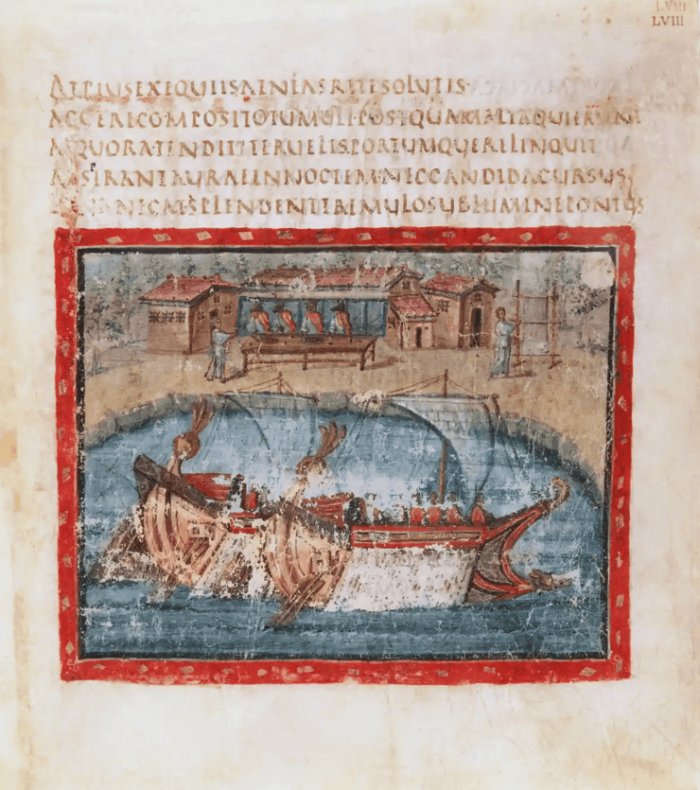 LVIII
LVIII
ATPIUSEXEQUIISAENEASRITESOLUTIS
AGGERECOMPOSITOTUMULIPOSTQUAMALTAQUIERUNT
AEQUORATENDITITERUELISPORTUMQUERELINQUIT
ADSPIRANTAURAEINNOCTEMNECCANDIDACURSUS
LUNANEGATSPLENDETTREMULOSUBLUMINEPONTUS